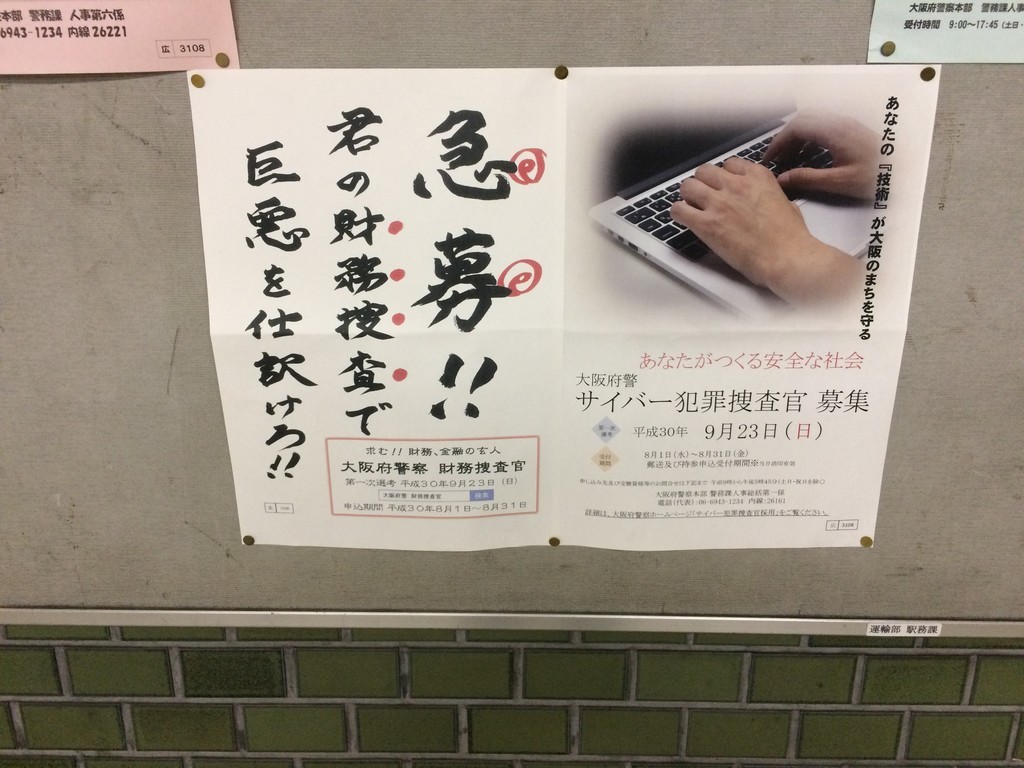 本部 警務課 人事第六係
6943-1234 内線26221
広 3108
大阪府警察本部 警務課人事
受付時間 9:00～17:45 (土日・
急募!!
君の財務捜査で
巨悪を仕訳けろ!!
求む!! 財務、金融の玄人
大阪府警察 財務捜査官
第一次選考 平成30年9月23日（日）
大阪府警 財務捜査官 検索
申込期間 平成30年8月1日～8月31日
あなたの『技術』が大阪のまちを守る
あなたがつくる安全な社会
大阪府警
サイバー犯罪捜査官 募集
第一次選考 平成30年 9月23日（日）
受付期間 8月1日(水)～8月31日(金)
郵送及び持参申込受付期間※当日消印有効
申し込み先及び受験資格等のお問合せは下記まで 午前9時から午後5時45分(土日・祝日を除く)
大阪府警察本部 警務課人事総括第一係
電話(代表):06-6943-1234 内線:26161
詳細は、大阪府警察ホームページ「サイバー犯罪捜査官採用」をご覧ください。
広 3108
運輸部 駅務課